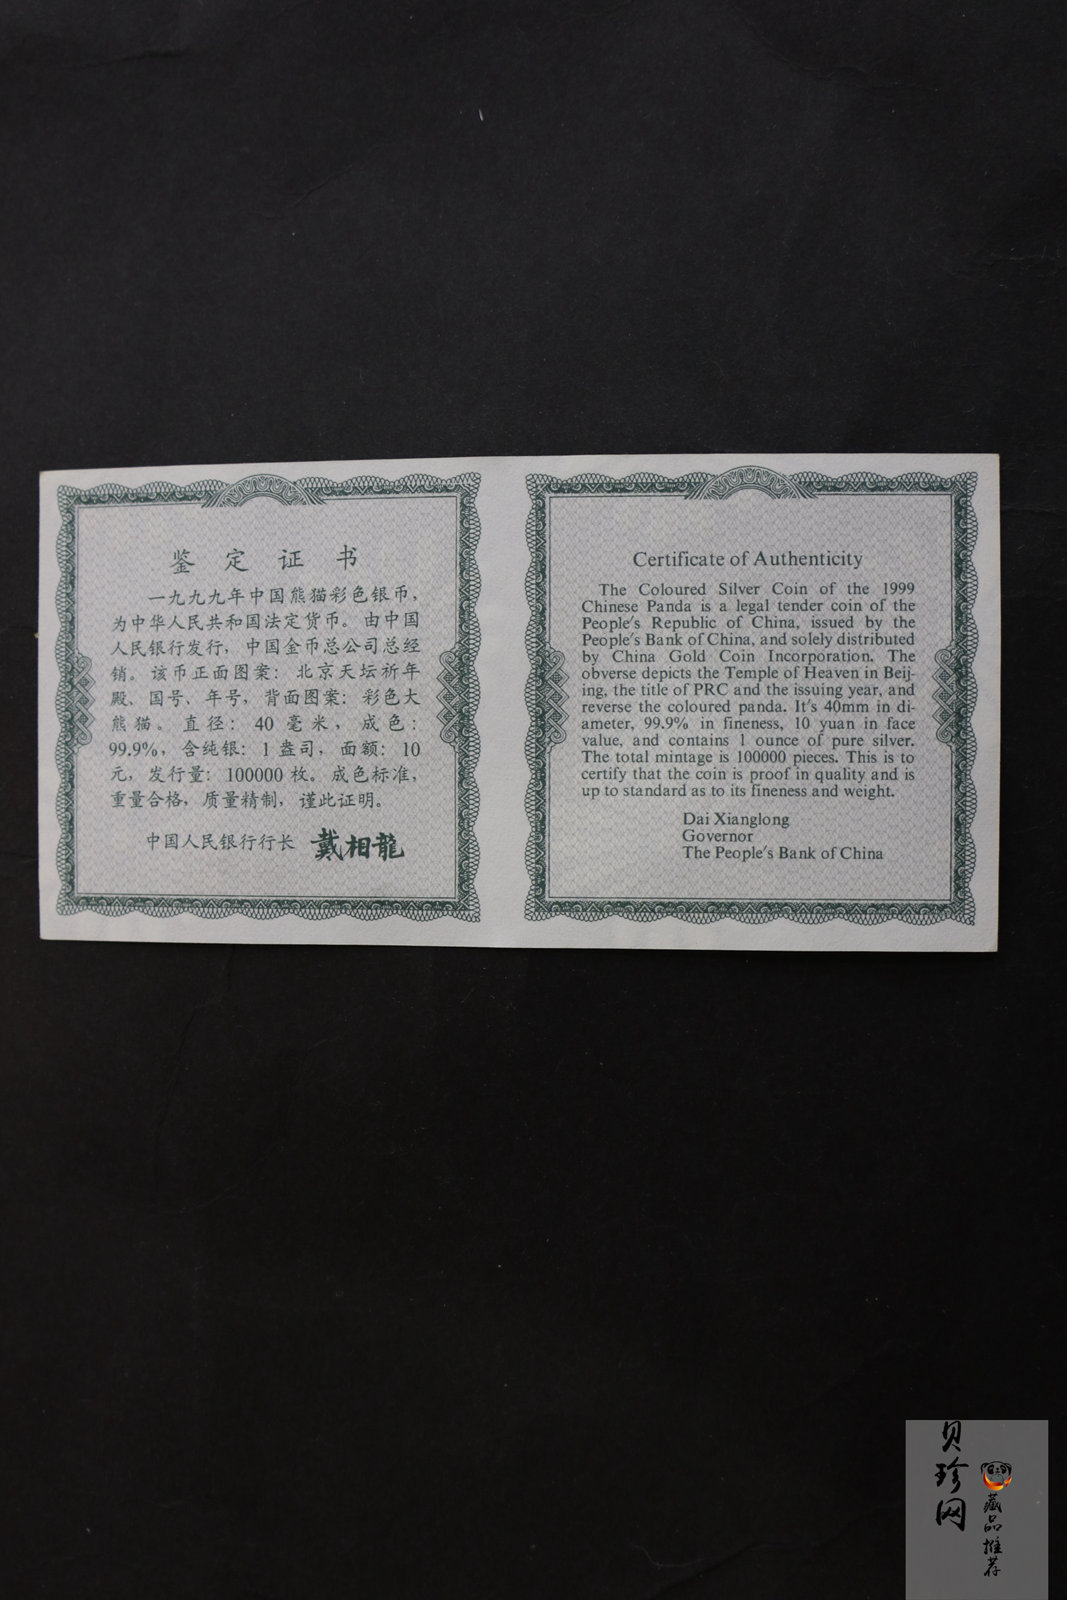 鉴定证书
一九九九年中国熊猫彩色银币，
为中华人民共和国法定货币。由中国
人民银行发行，中国金币总公司总经
销。该币正面图案：北京天坛祈年
殿、国号、年号，背面图案：彩色大
熊猫。直径：40毫米，成色：
99.9%，含纯银：1盎司，面额：10
元，发行量：100000枚。成色标准，
重量合格，质量精制，谨此证明。
中国人民银行行长 戴相龍
Certificate of Authenticity
The Coloured Silver Coin of the 1999
Chinese Panda is a legal tender coin of the
People's Republic of China, issued by the
People's Bank of China, and solely distributed
by China Gold Coin Incorporation. The
obverse depicts the Temple of Heaven in Beij-
ing, the title of PRC and the issuing year, and
reverse the coloured panda. It's 40mm in di-
ameter, 99.9% in fineness, 10 yuan in face
value, and contains 1 ounce of pure silver.
The total mintage is 100000 pieces. This is to
certify that the coin is proof in quality and is
up to standard as to its fineness and weight.
Dai Xianglong
Governor
The People's Bank of China
贝珍网
藏品推荐